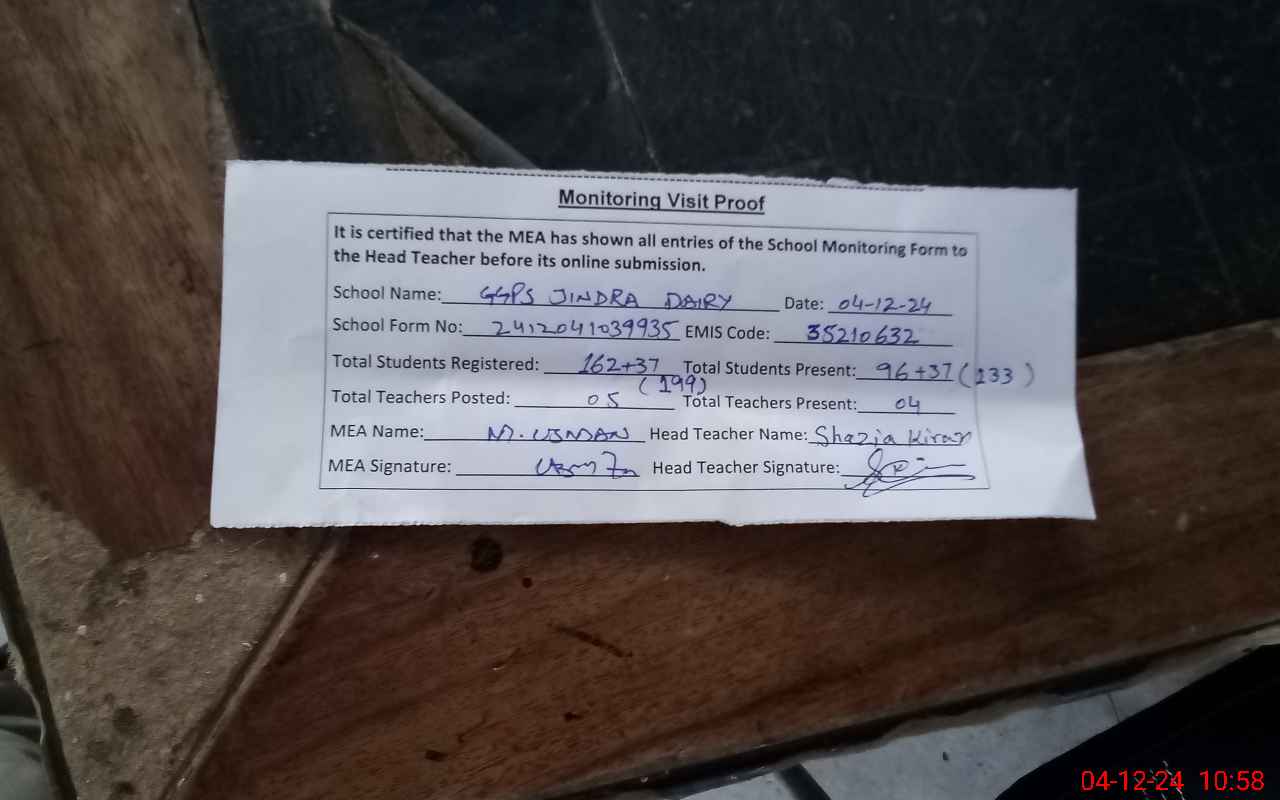 Monitoring Visit Proof
It is certified that the MEA has shown all entries of the School Monitoring Form to
the Head Teacher before its online submission.
School Name: GGPS JINDRA DAIRY Date: 04-12-24
School Form No: 2412041039935 EMIS Code: 35210632
Total Students Registered: 162+37 Total Students Present: 96+37 (133)
(199)
Total Teachers Posted: 05 Total Teachers Present: 04
MEA Name: M. USMAN Head Teacher Name: Shazia Kiran
MEA Signature: Head Teacher Signature:
04-12-24 10:58